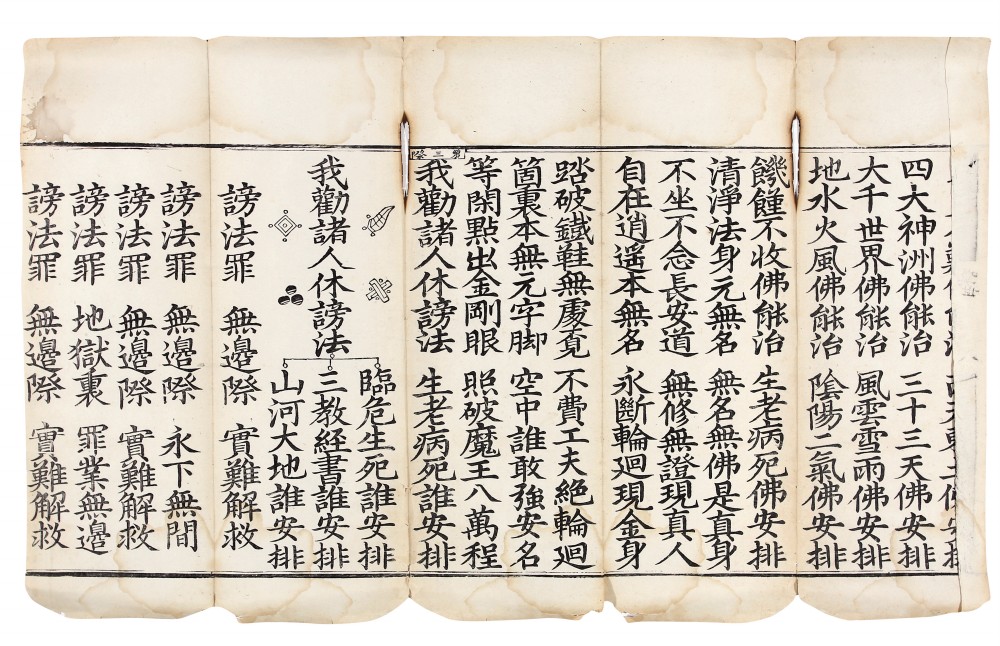 佛安排
四大神洲佛能治 三十三天佛安排
大千世界佛能治 風雲雪雨佛安排
地水火風佛能治 陰陽二氣佛安排
饑饉不收佛能治 生老病死佛安排
清淨法身元無名 無名無佛是真身
不坐不念長安道 無修無證現真人
自在逍遥本無名 永斷輪廻現金身
踏破鐵鞋無處覓 不費工夫絶輪廻
箇裏本無元字脚 空中誰敢強安名
等閑點出金剛眼 照破魔王八萬程
我勸諸人休謗法 生老病死誰安排
我勸諸人休謗法
臨危生死誰安排
三教經書誰安排
山河大地誰安排
謗法罪 無邊際 實難解救
謗法罪 無邊際 永下無間
謗法罪 無邊際 實難解救
謗法罪 地獄裏 罪業無邊
謗法罪 無邊際 實難解救